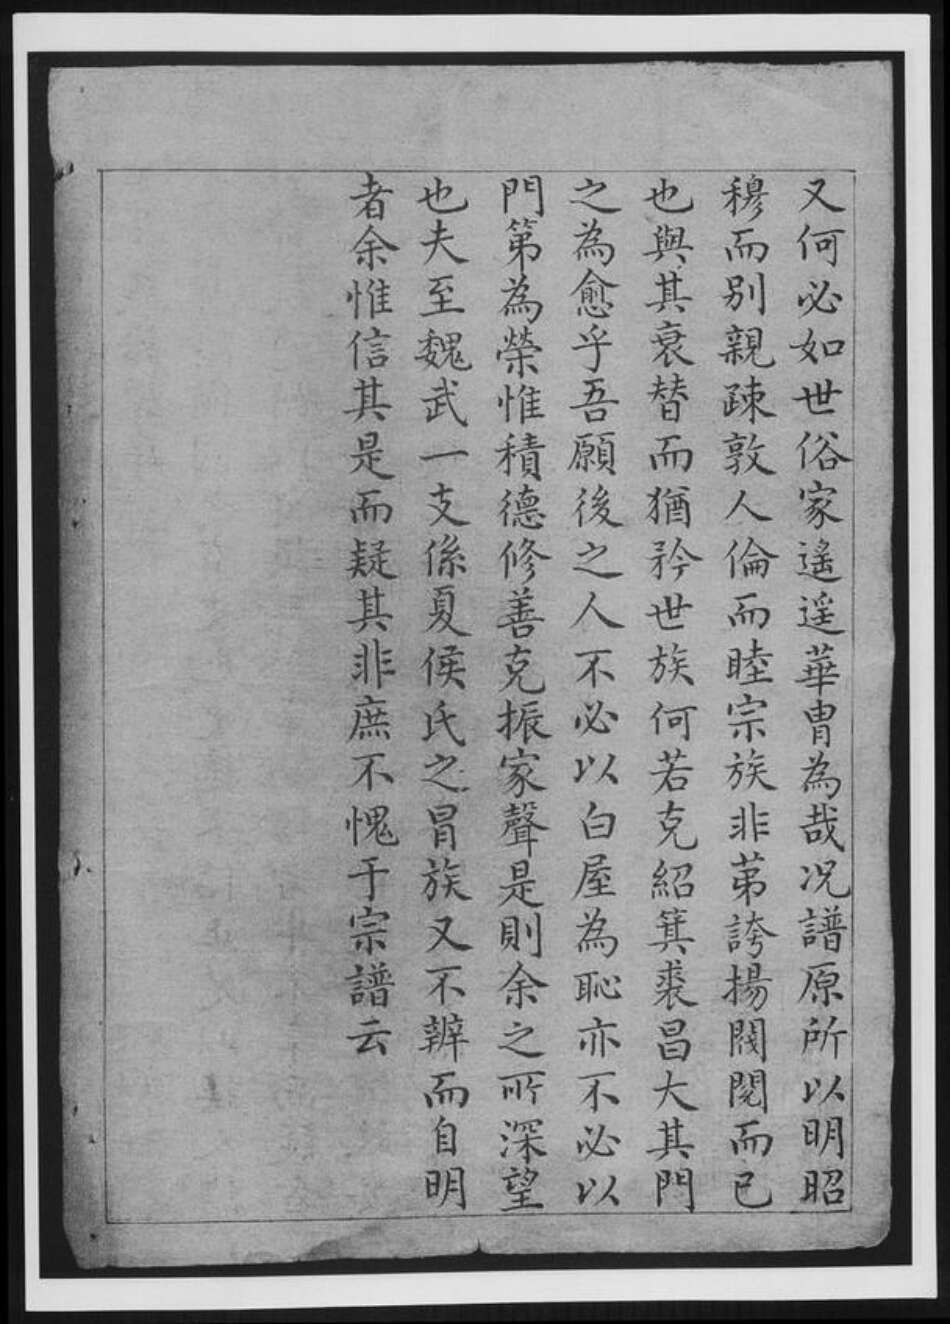 又何必如世俗家遙遥華冑為哉况譜原所以明昭
穆而别親疎敦人倫而睦宗族非苐誇揚閥閱而已
也與其衰替而猶矜世族何若克紹箕裘昌大其門
之為愈乎吾願後之人不必以白屋為恥亦不必以
門第為榮惟積德修善克振家聲是則余之所深望
也夫至魏武一支係夏侯氏之冒族又不辦而自明
者余惟信其是而疑其非庶不愧于宗譜云